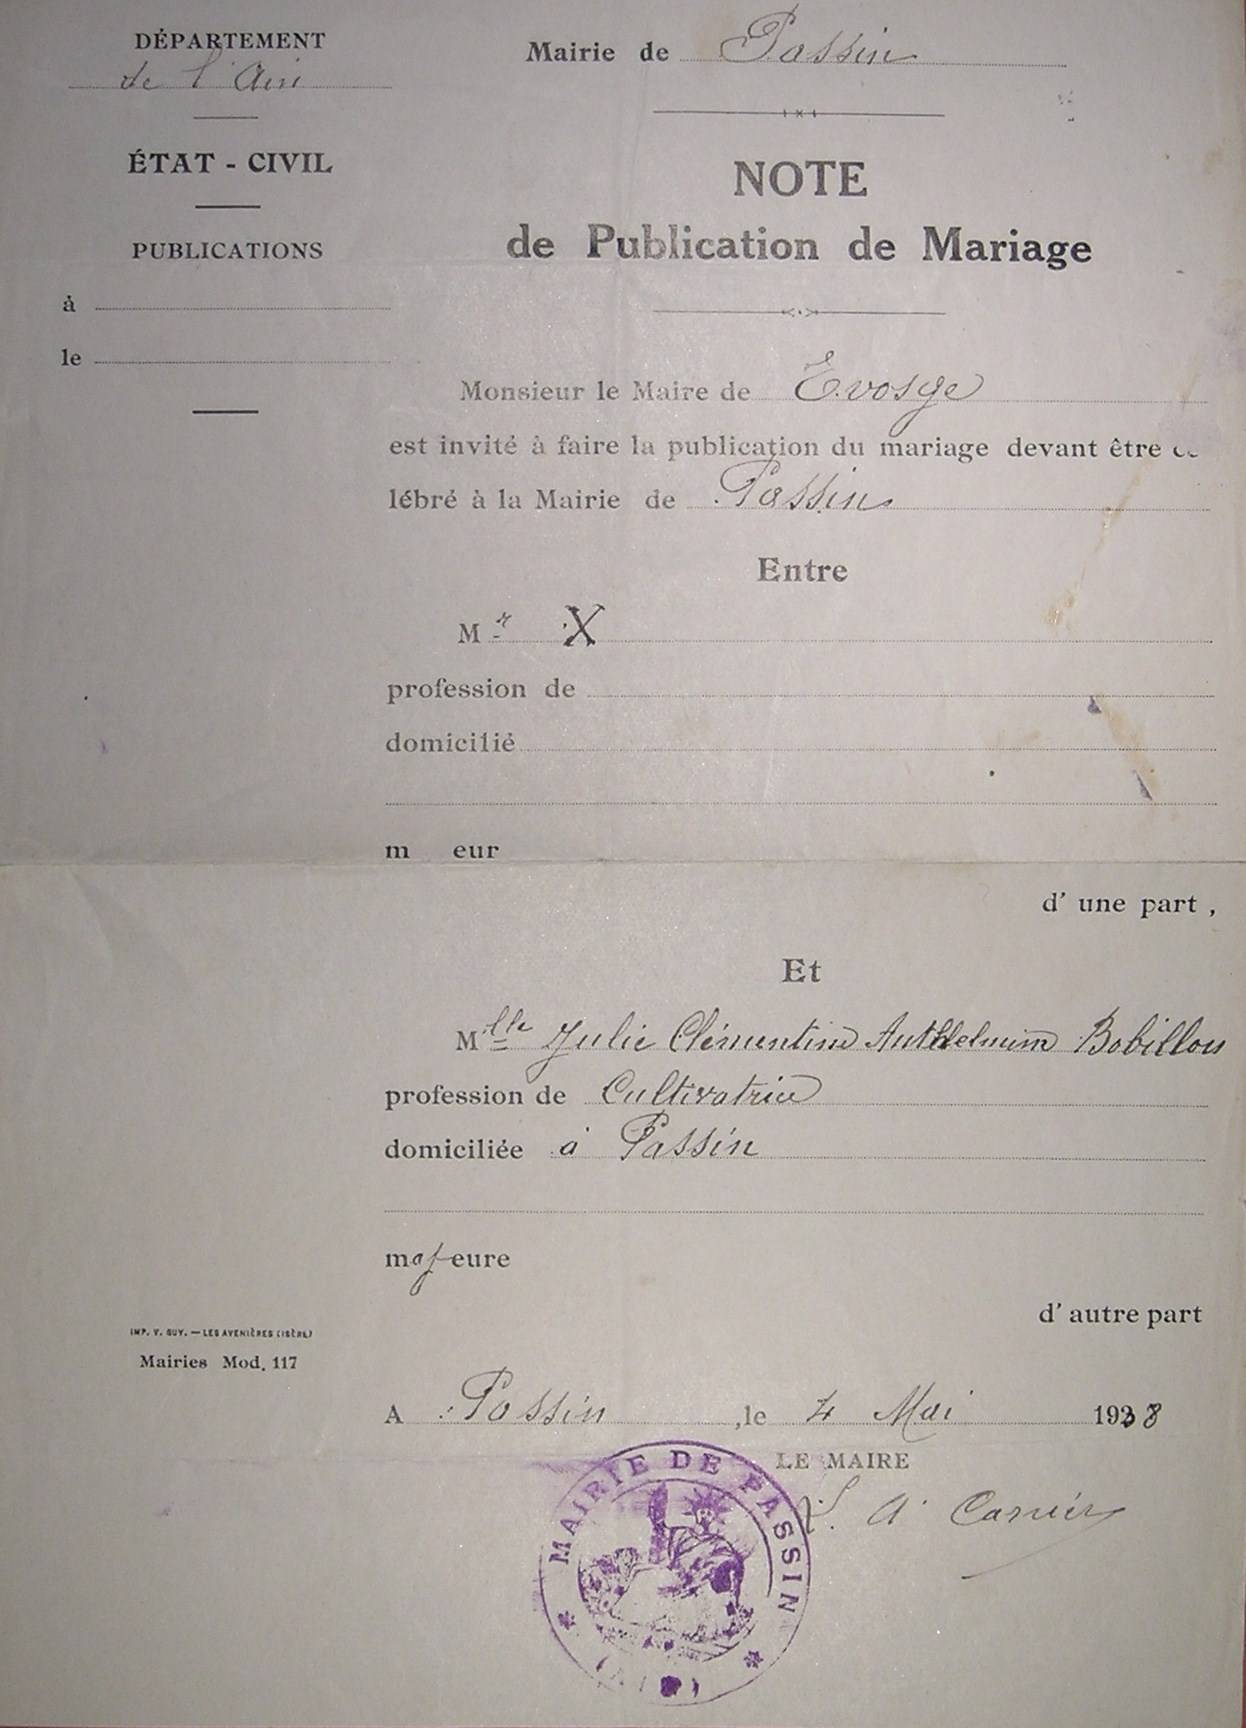 DÉPARTEMENT
de l'Ain
ÉTAT - CIVIL
PUBLICATIONS
à
le
Mairie de Passin
NOTE
de Publication de Mariage
Monsieur le Maire de Evosge
est invité à faire la publication du mariage devant être cé
lébré à la Mairie de Passin
Entre
Mr X
profession de
domicilié
m eur
d' une part ,
Et
Mlle Julie Clémentine Anthelmine Bobillon
profession de Cultivatrice
domiciliée à Passin
majeure
d' autre part
IMP. V. GUY. — LES AVENIÈRES (ISÈRE)
Mairies Mod. 117
A Passin , le 4 Mai 1938
LE MAIRE
MAIRIE DE PASSIN
(AIN)